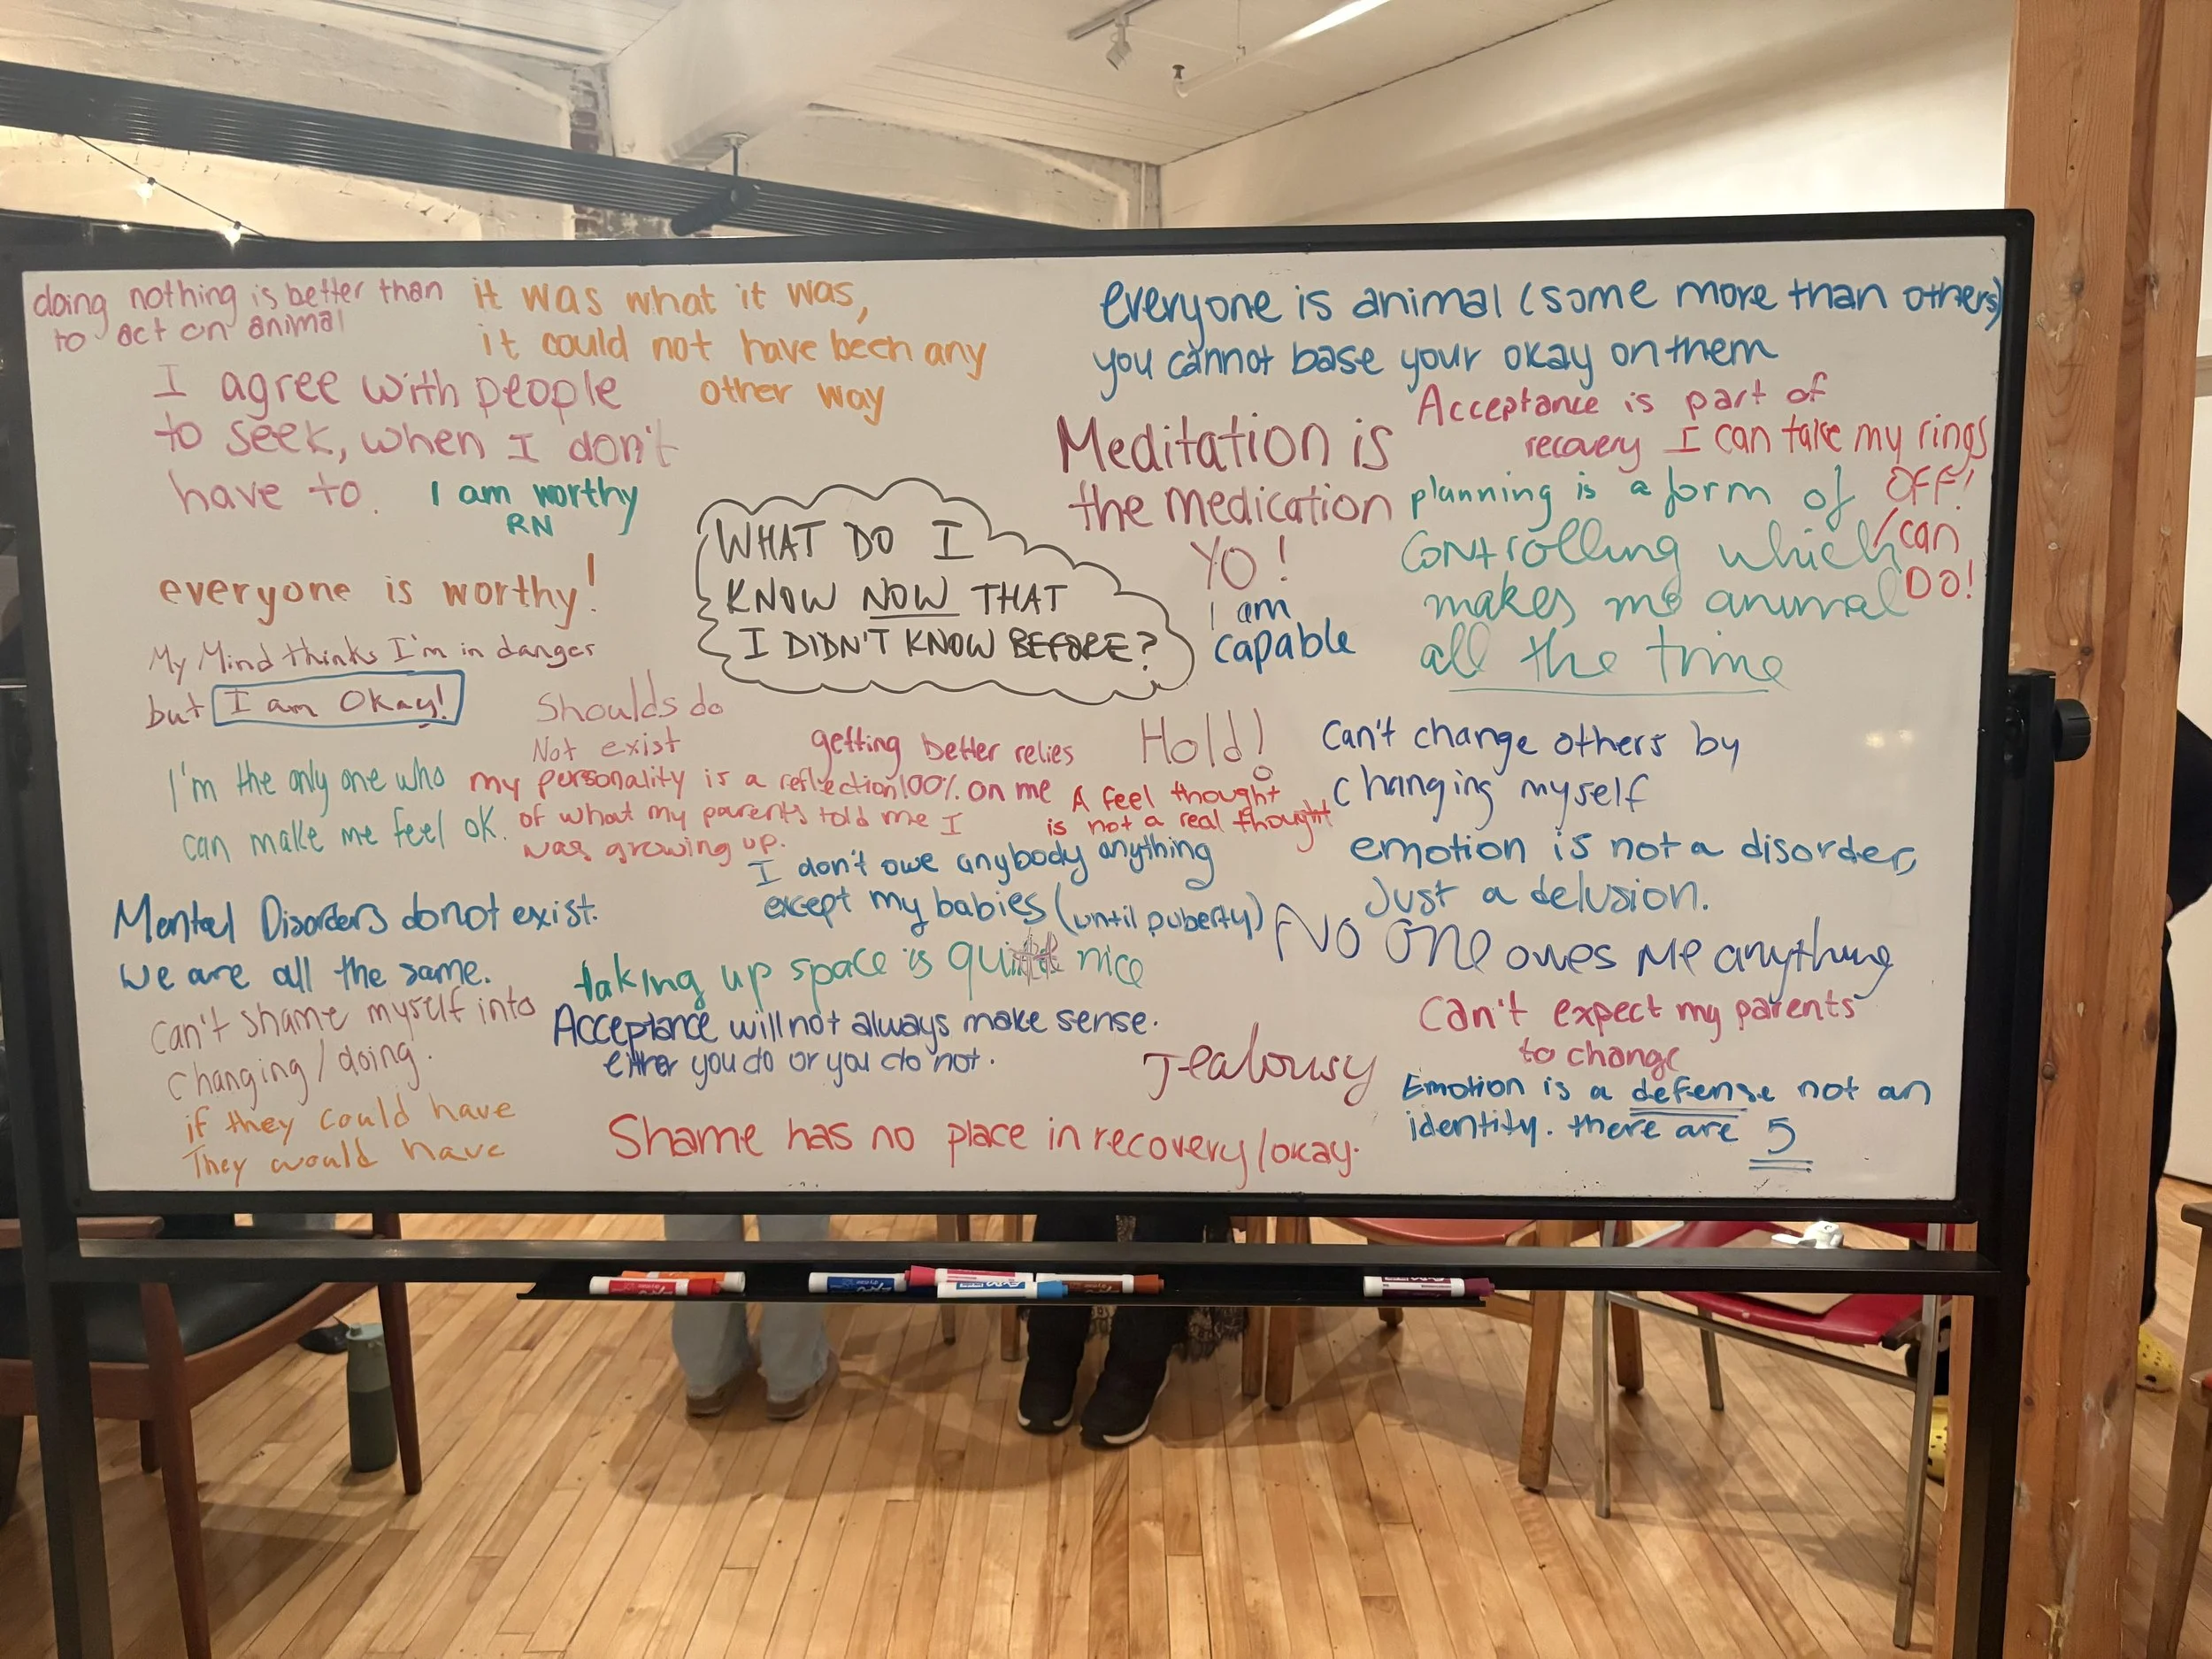 doing nothing is better than
to act on animal
it was what it was,
it could not have been any
other way
I agree with people
to seek, when I don't
have to.
I am worthy
RN
everyone is worthy!
My Mind thinks I'm in danger
but I am Okay!
WHAT DO I
KNOW NOW THAT
I DIDN'T KNOW BEFORE?
everyone is animal (some more than others)
you cannot base your okay on them
Meditation is
the medication
YO!
Acceptance is part of
recovery
I can take my rings
OFF!
I can
DO!
planning is a form of
controlling which
makes me animal
all the time
I am
capable
Shoulds do
Not exist
I'm the only one who
can make me feel ok.
my personality is a reflection
of what my parents told me I
was growing up.
getting better relies
100% on me
Hold!
A feel thought
is not a real thought
Can't change others by
changing myself
I don't owe anybody anything
except my babies (until puberty)
emotion is not a disorder,
Just a delusion.
Mental Disorders do not exist.
We are all the same.
taking up space is nice
No one owes me anything
Can't shame myself into
changing/doing.
Acceptance will not always make sense.
either you do or you do not.
Jealousy
Can't expect my parents
to change
if they could have
They would have
Shame has no place in recovery/okay.
Emotion is a defense not an
identity. there are 5
EXPO